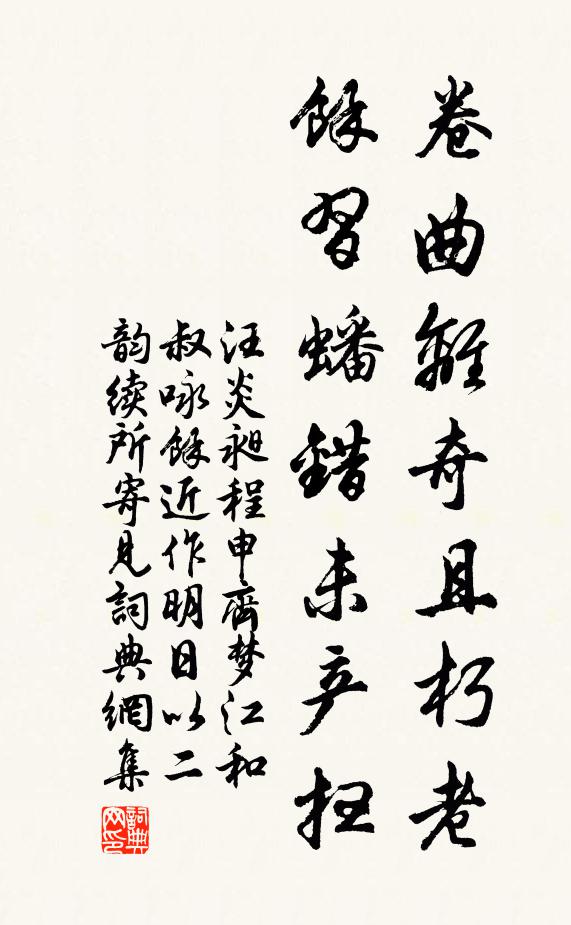 卷曲離奇且朽老
餘習蟠錯未产扭
汪炎昶程申齊梦江和
叔咏餘近作明日以二
韵续所寄見詞典網集
詞典网印